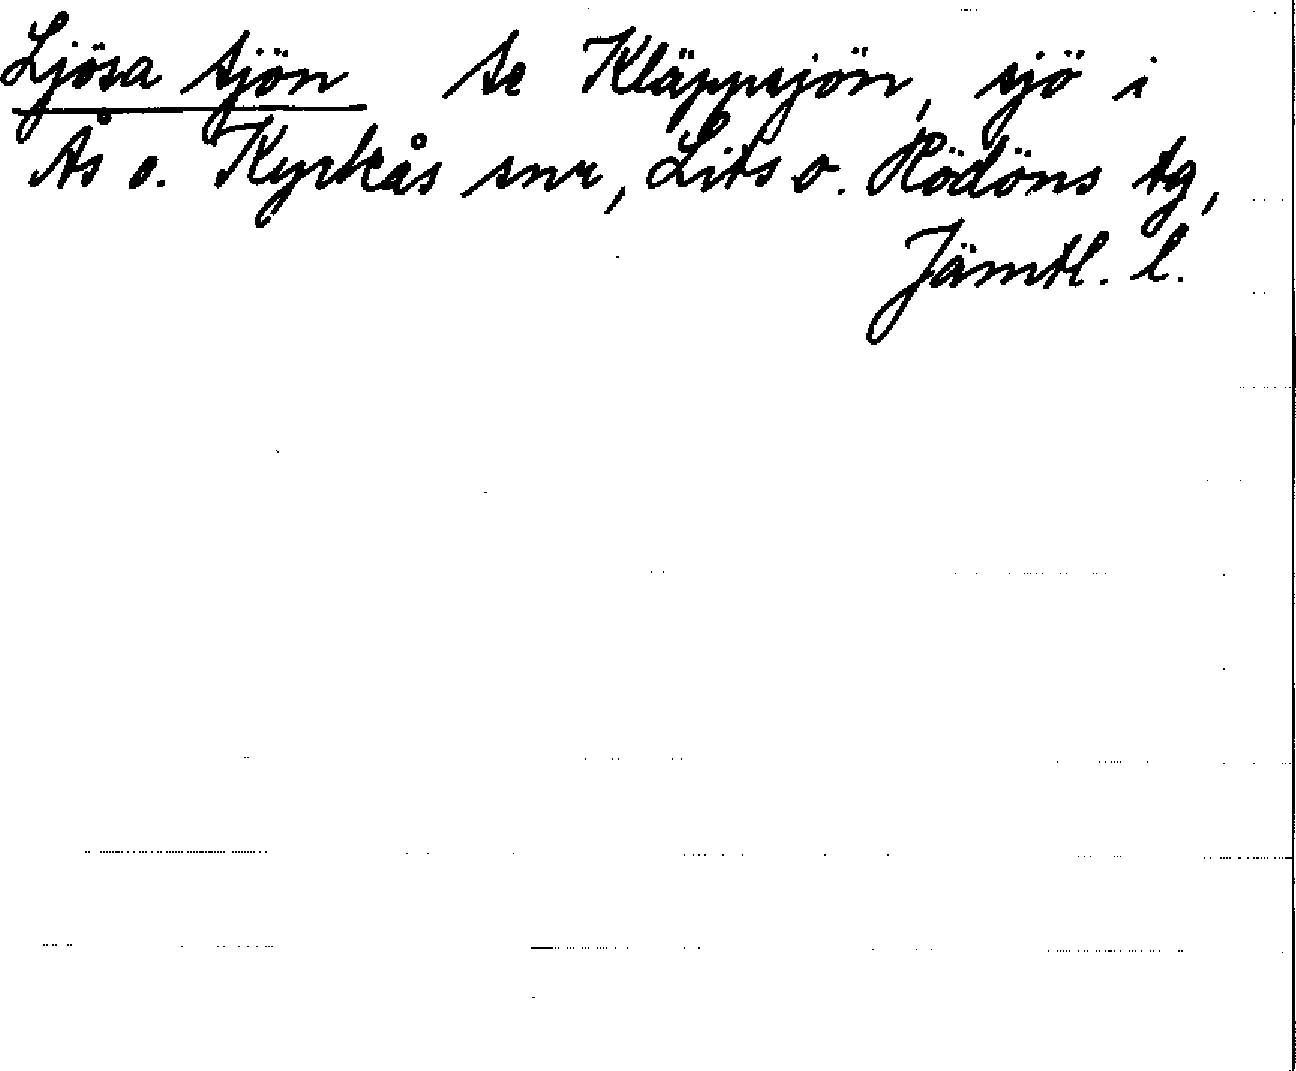 Ljösa tjön se Kläppsjön, sjö i
Ås o. Kyrkås snr, Lits o. Rödöns tg,
Jämtl. l.